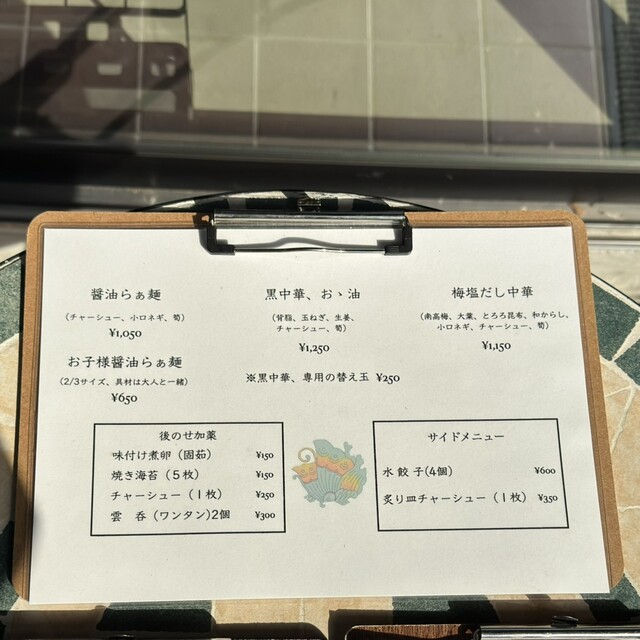 醤油らぁ麺
(チャーシュー、小口ネギ、筍)
¥1,050
お子様醤油らぁ麺
(2/3サイズ、具材は大人と一緒)
¥650
黒中華、おゝ油
(背脂、玉ねぎ、生姜、
チャーシュー、筍)
¥1,250
※黒中華、専用の替え玉 ¥250
梅塩だし中華
(南高梅、大葉、とろろ昆布、和からし、
小口ネギ、チャーシュー、筍)
¥1,150
後のせ加薬
味付け煮卵(固茹) ¥150
焼き海苔(5枚) ¥150
チャーシュー(1枚) ¥250
雲 呑(ワンタン)2個 ¥300
サイドメニュー
水 餃 子(4個) ¥600
炙り皿チャーシュー(1枚) ¥350